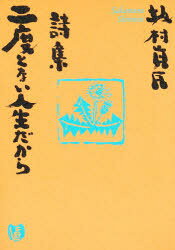 坂村真民
詩集
二度とない人生だから